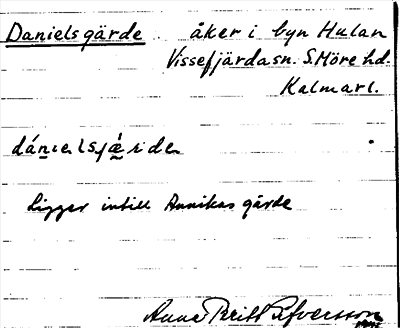 Danielsgärde åker i byn Hulan
Vissefjärda sn. S. Möre hd.
Kalmar l.
dánielsjæ̀rde
Ligger intill Annikas gärde
Anna Britt